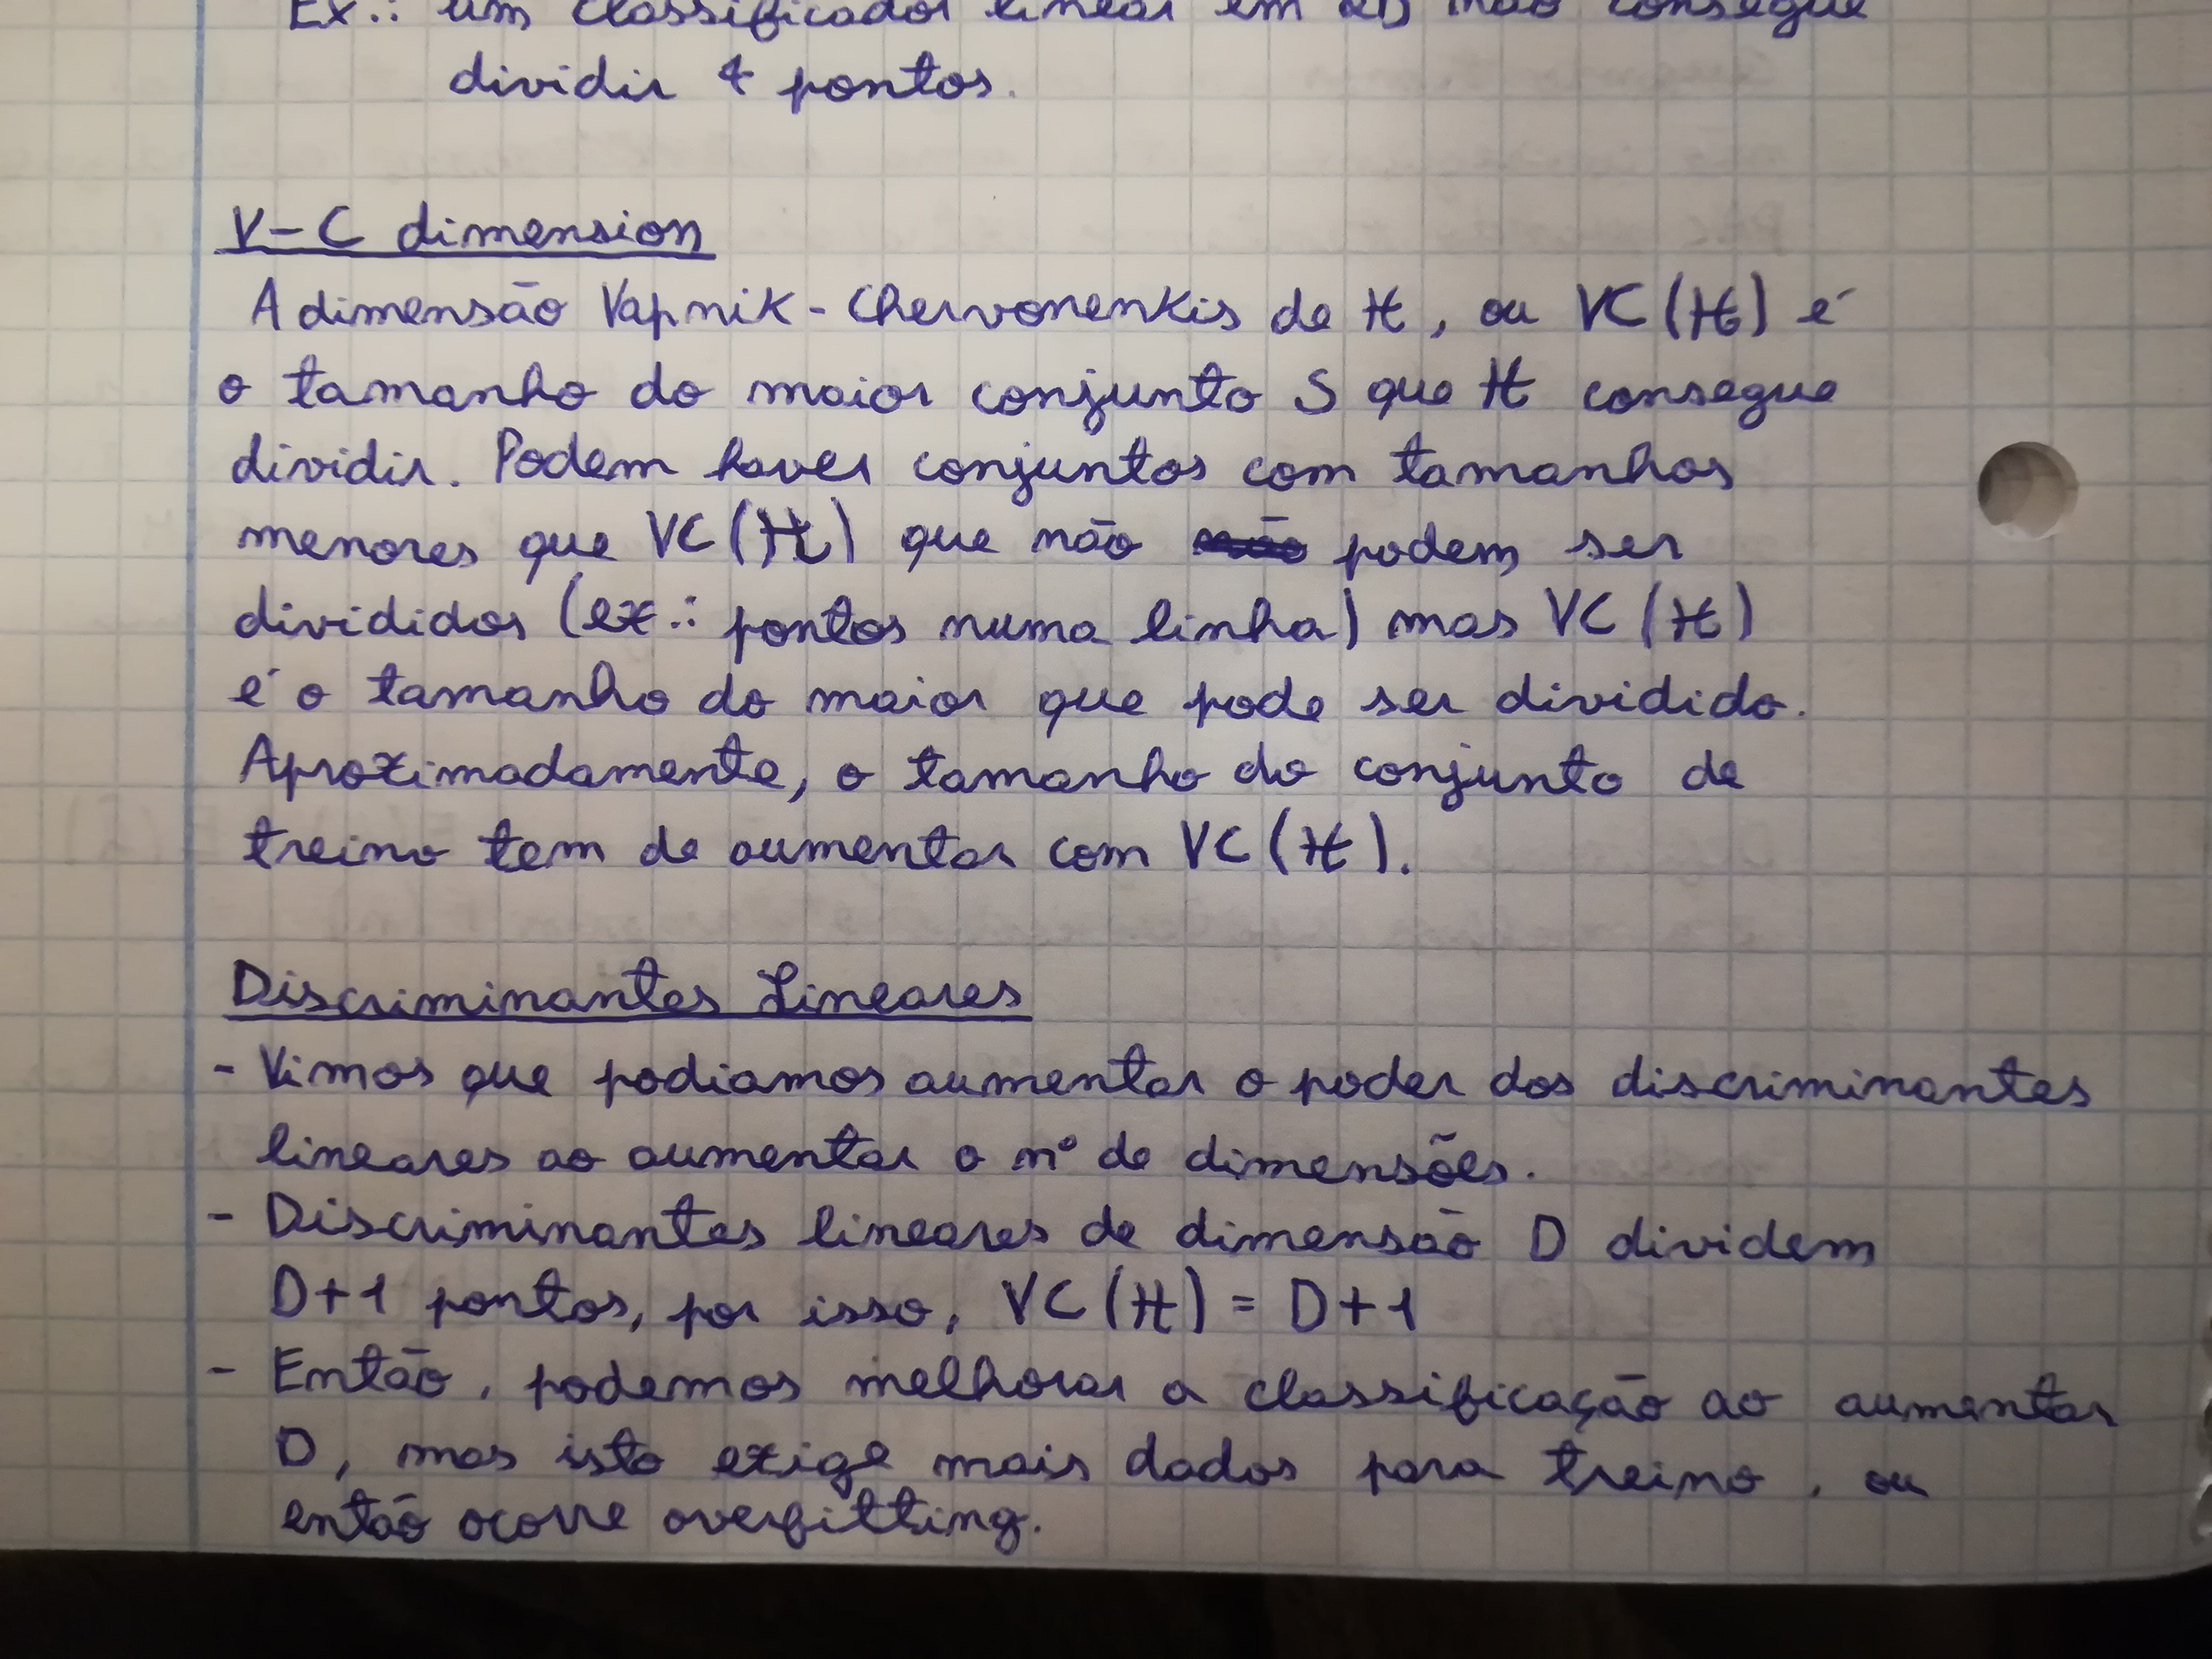 Ex.: um classificador linear em 2D não consegue
dividir 4 pontos.
V-C dimension
A dimensão Vapnik-Chervonenkis de H, ou VC(H) é
o tamanho do maior conjunto S que H consegue
dividir. Podem haver conjuntos com tamanhos
menores que VC(H) que não podem ser
divididos (ex.: pontos numa linha) mas VC(H)
é o tamanho do maior que pode ser dividido.
Aproximadamente, o tamanho do conjunto de
treino tem de aumentar com VC(H).
Discriminantes Lineares
- Vimos que podiamos aumentar o poder dos discriminantes
lineares ao aumentar o nº de dimensões.
- Discriminantes lineares de dimensão D dividem
D+1 pontos, por isso, VC(H) = D+1
- Então, podemos melhorar a classificação ao aumentar
D, mas isto exige mais dados para treino, ou
então ocorre overfitting.